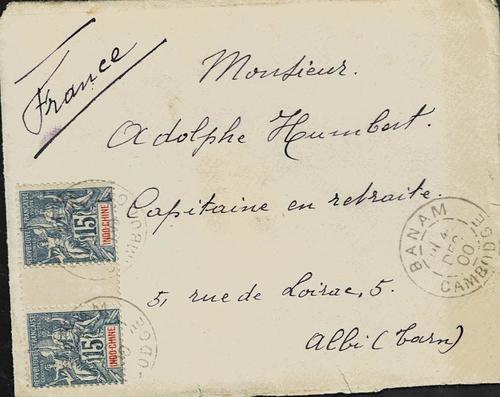 France
Monsieur.
Adolphe Humbert.
Capitaine en retraite.
5, rue de Loirac, 5.
Albi (Tarn)
BANAM
4
DEC
00
CAMBODGE
RÉPUBLIQUE FRANÇAISE
15
INDO-CHINE
RÉPUBLIQUE FRANÇAISE
15
INDO-CHINE